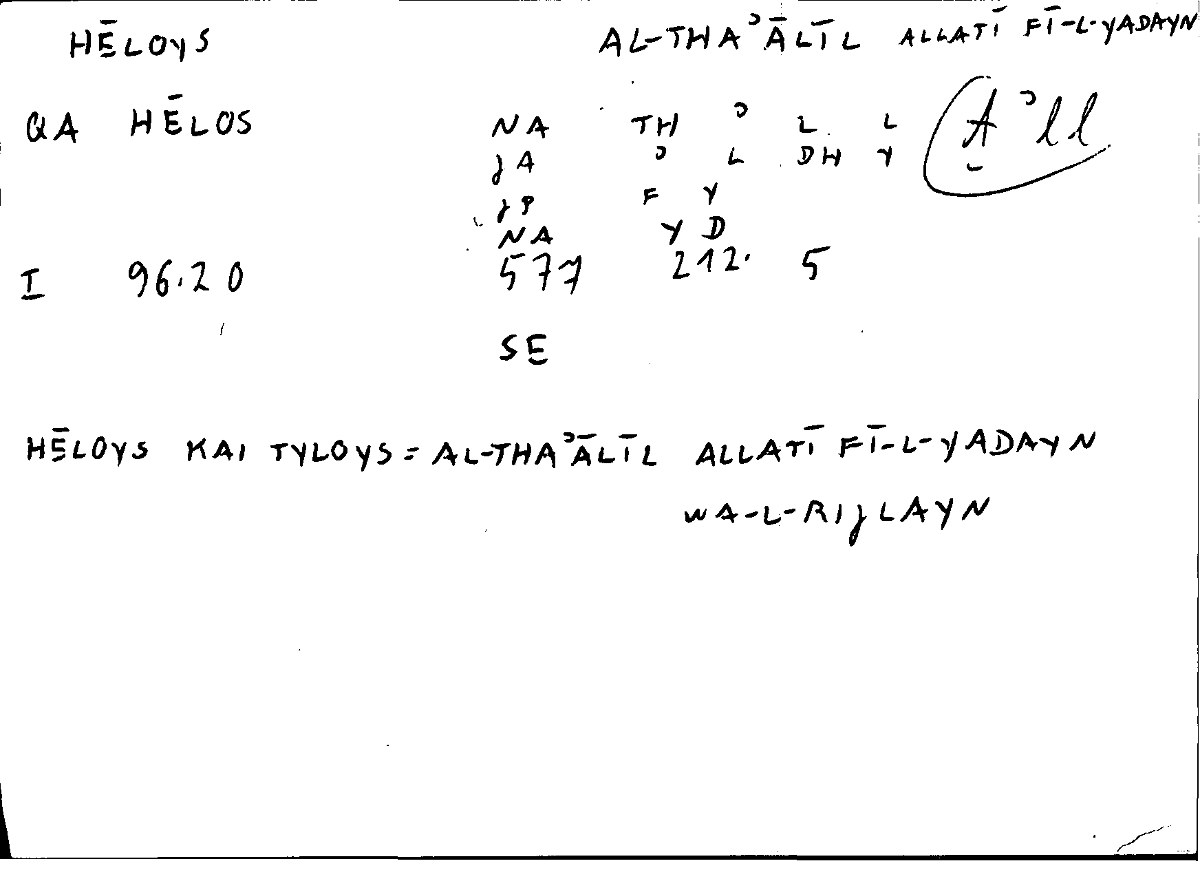 HĒLOYS AL-THAʾĀLĪL ALLATĪ FĪ-L-YADAYN
QA HĒLOS NA TH ʾ L L
JA ʾ L DH Y
JP F Y
NA Y D
I 96.20 577 212. 5
SE
HĒLOYS KAI TYLOYS = AL-THAʾĀLĪL ALLATĪ FĪ-L-YADAYN
WA-L-RIJLAYN